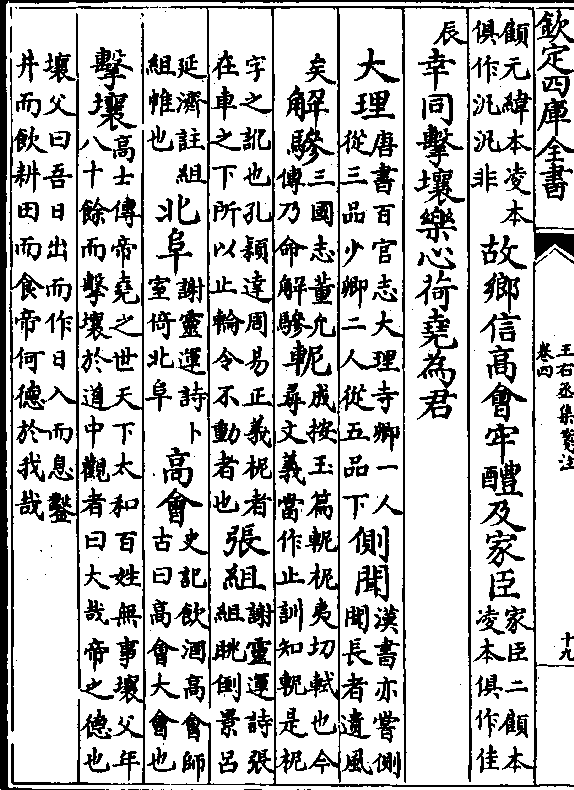 欽定四庫全書
王右丞集箋注
卷四
十九
顧元緯本凌本
俱作汎汎非
故鄉信高會牢醴及家臣
家臣二顧本
凌本俱作佳
辰
幸同擊壤樂心荷堯為君
大理
唐書百官志大理寺卿一人
從三品少卿二人從五品下
側聞
漢書亦嘗側
聞長者遺風
矣
解驂
三國志董允
傳乃命解驂
成按玉篇柅夷切軾也今
尋文義當作止訓知是柅
字之訛也孔穎達周易正義柅者
在車之下所以止輪令不動者也
張組
謝靈運詩張
組眺倒景呂
延濟註組
組帷也
北阜
謝靈運詩卜
室倚北阜
高會
史記飲酒高會師
古曰高會大會也
擊壤
高士傳帝堯之世天下太和百姓無事壤父年
八十餘而擊壤於道中觀者曰大哉帝之德也
壤父曰吾日出而作日入而息鑿
井而飲耕田而食帝何德於我哉